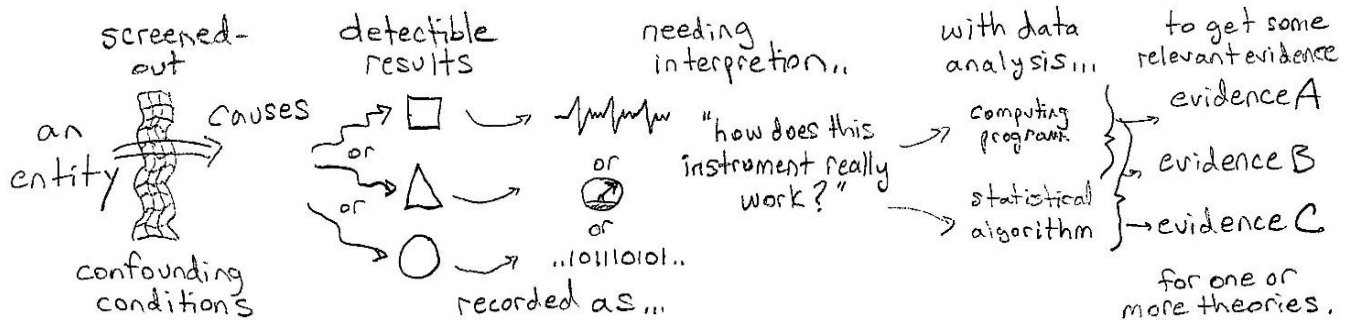 screened-
out
an
entity
confounding
conditions
causes
detectible
results
or
or
recorded as...
needing
interpretion..
or
or
..101110101..
"how does this
instrument really
work?"
with data
analysis...
computing
program
statistical
algorithm
to get some
relevant evidence
evidence A
evidence B
evidence C
for one or
more theories.